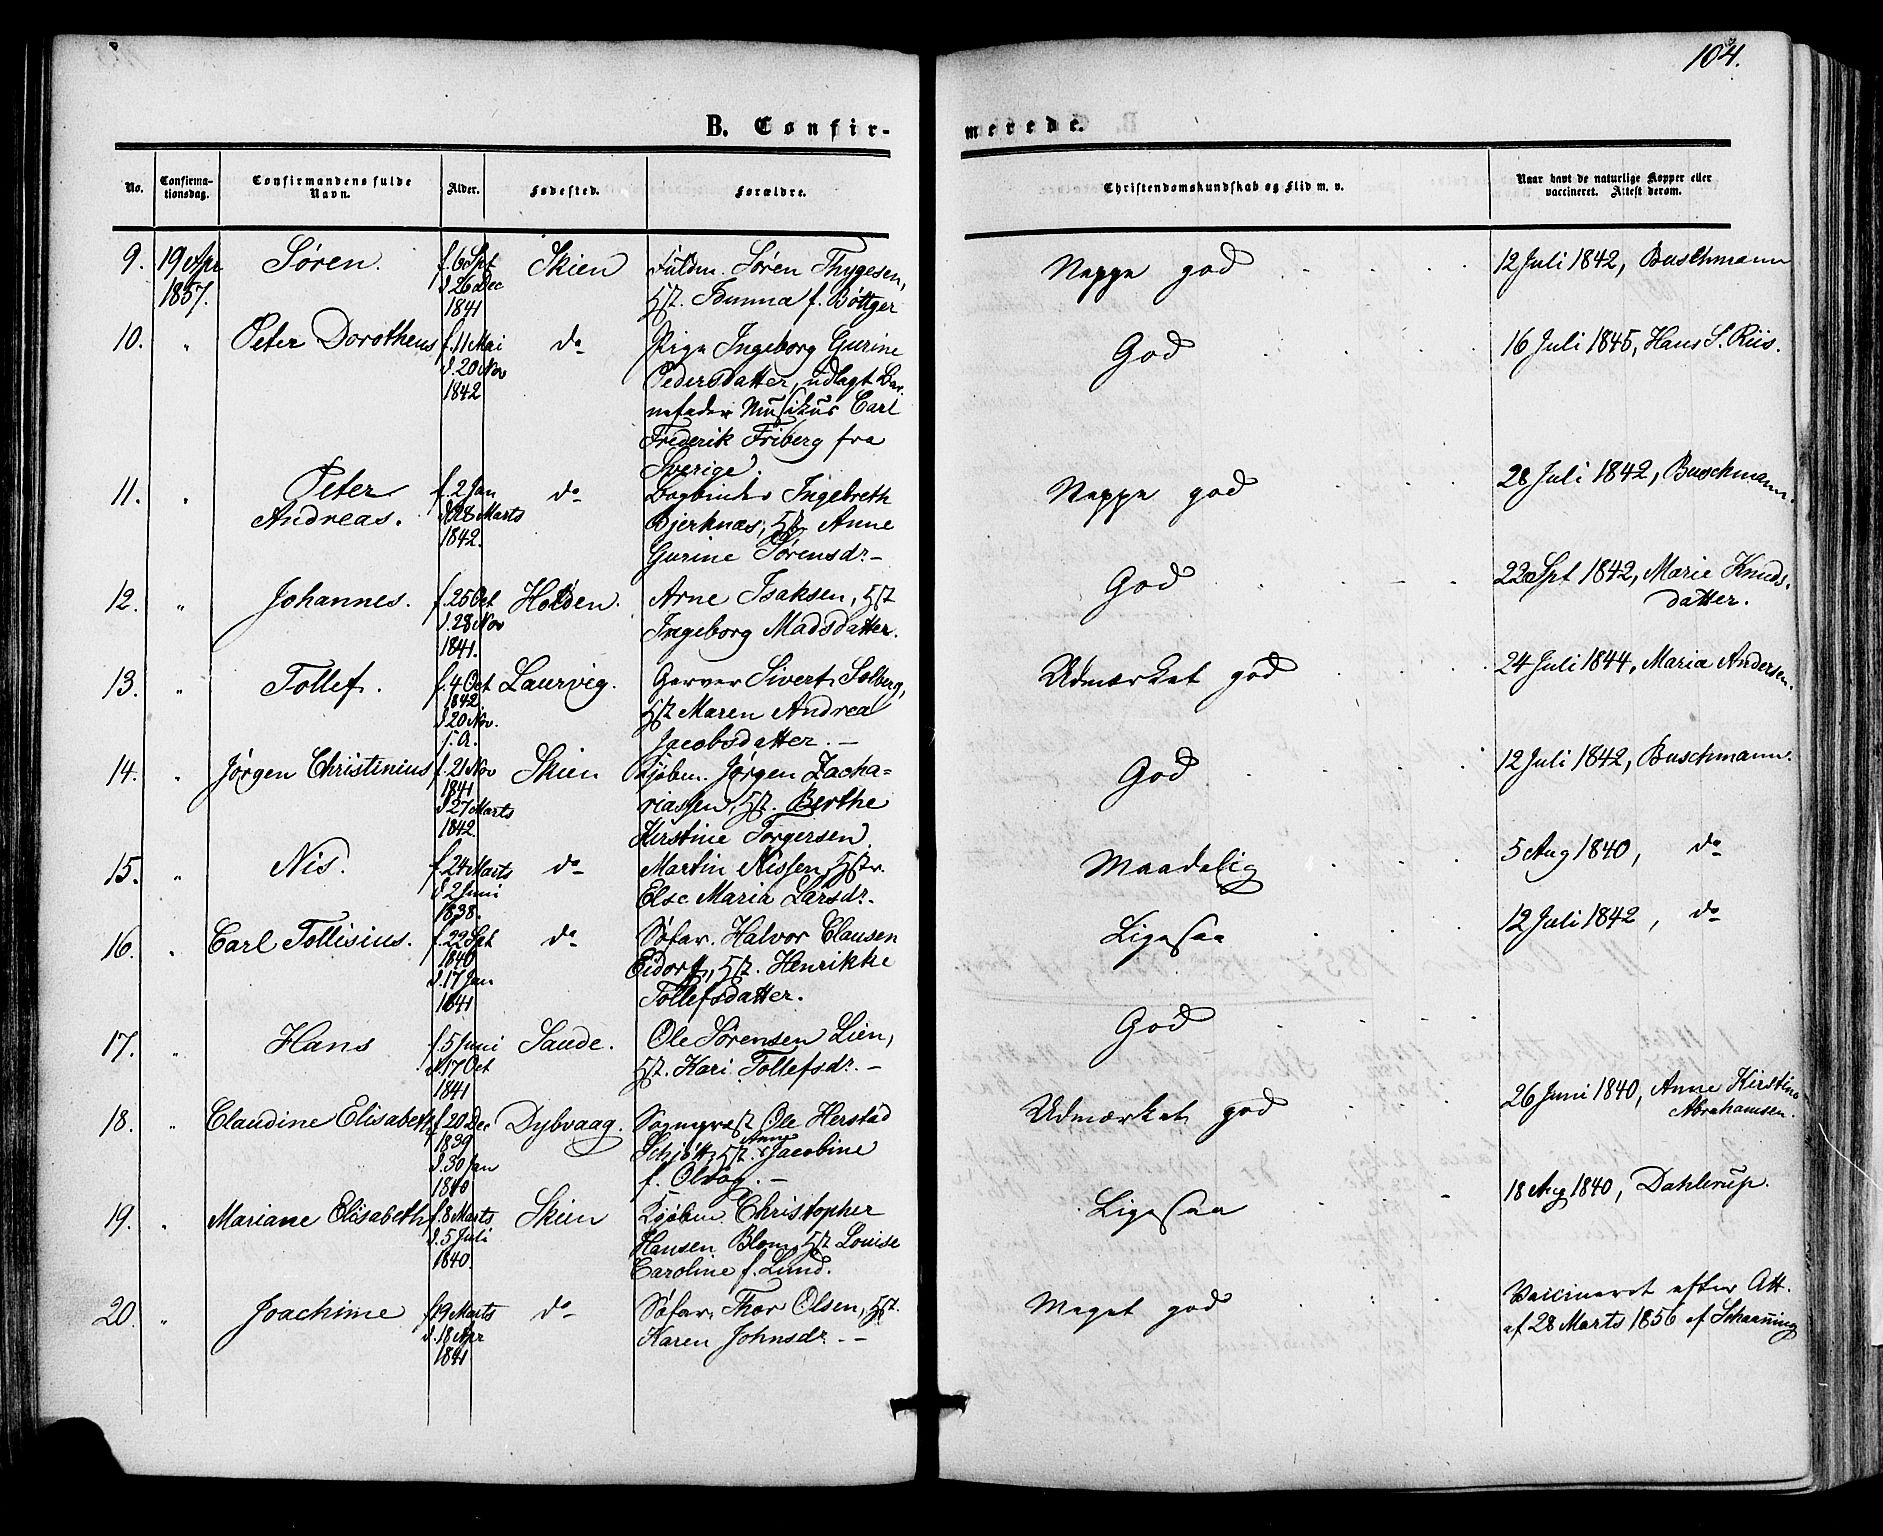 104.
B. Confir-
merede.
No.
Confirma-
tionsdag.
Confirmandens fulde
Navn.
Alder.
Fødested.
Forældre.
Christendomskundskab og Flid m. v.
Naar havt de naturlige Kopper eller
vaccineret. Attest derom.
9. 19 Apr Søren. f. 6 Spt Skien Fuldm. Søren Thygesen, Neppe god 12 Juli 1842, Buschmann
1857. d. 26 Dec Hst. f. Bøttger
1841
10. " Peter Dorotheus f. 11 Mai do Pige Ingeborg Gurine God 16 Juli 1845, Hans S. Riis.
d. 20 Nov Pedersdatter, udlagt Bar-
1842 nefader Musikus Carl
Frederik Friberg fra
Sverige.
11. " Peter f. 2 Jan do Bogbinder Ingebreth Neppe god 28 Juli 1842, Buschmann.
Andreas. d. 28 Marts Bjerknæs, Hst Anne
1842. Gurine Sørensdr. –
12. " Johannes. f. 25 Oct Holden. Arne Isaksen, Hst God 22 Spt 1842, Marie Knuds-
d. 28 Nov Ingeborg Madsdatter. datter.
1841.
13. " Tollef. f. 4 Oct Laurvig. Garver Sivert Solberg, Udmærket god 24 Juli 1844, Maria Andersen.
1842 Hst Maren Andrea
d. 20 Nov. Jacobsdatter. –
s. A.
14. " Jørgen Christinius f. 21 Nov Skien Kjøbm. Jørgen Zacha= God 12 Juli 1842, Buschmann.
1841 riassen, Hst. Berthe
d. 27 Marts Kirstine Torgersen.
1842.
15. " Nis. f. 24 Marts do Martin Nissen, Hstr. Maadelig 5 Aug 1840, do
d. 2 Juni Else Maria Larsdr.
1838.
16. " Carl Tollisius. f. 22 Spt do Søfar. Halvor Clausen Ligesaa 12 Juli 1842, do
1840 Eidort, Hst. Henrikke
d. 17 Jan Tollefsdatter.
1841
17. " Hans f. 5 Juni Saude. Ole Sørensen Lien, God
d. 17 Oct Hst. Kari Tollefsdr. –
1841
18. " Claudine Elisabeth f. 20 Dec Dybvaag. Sognepræst Ole Herstad Udmærket god 26 Juni 1840, Anne Kirstine
1839 Schjøtt, Hst. Anne Jacobine Abrahamsen.
d. 30 Jan f. Olvog. –
1840
19. " Mariane Elisabeth f. 8 Marts Skien Kjøbm. Christopher Ligesaa 18 Aug 1840, Dahlerup.
d. 5 Juli Hansen Blom, Hst Louise
1840. Caroline f. Lund.
20. " Joachime f. 19 Marts do Søfar. Thor Olsen, Hst. Meget god Vaccineret efter Att.
d. 18 Apr Karen Johnsdr. – af 28 Marts 1856 af Schaaning
1841